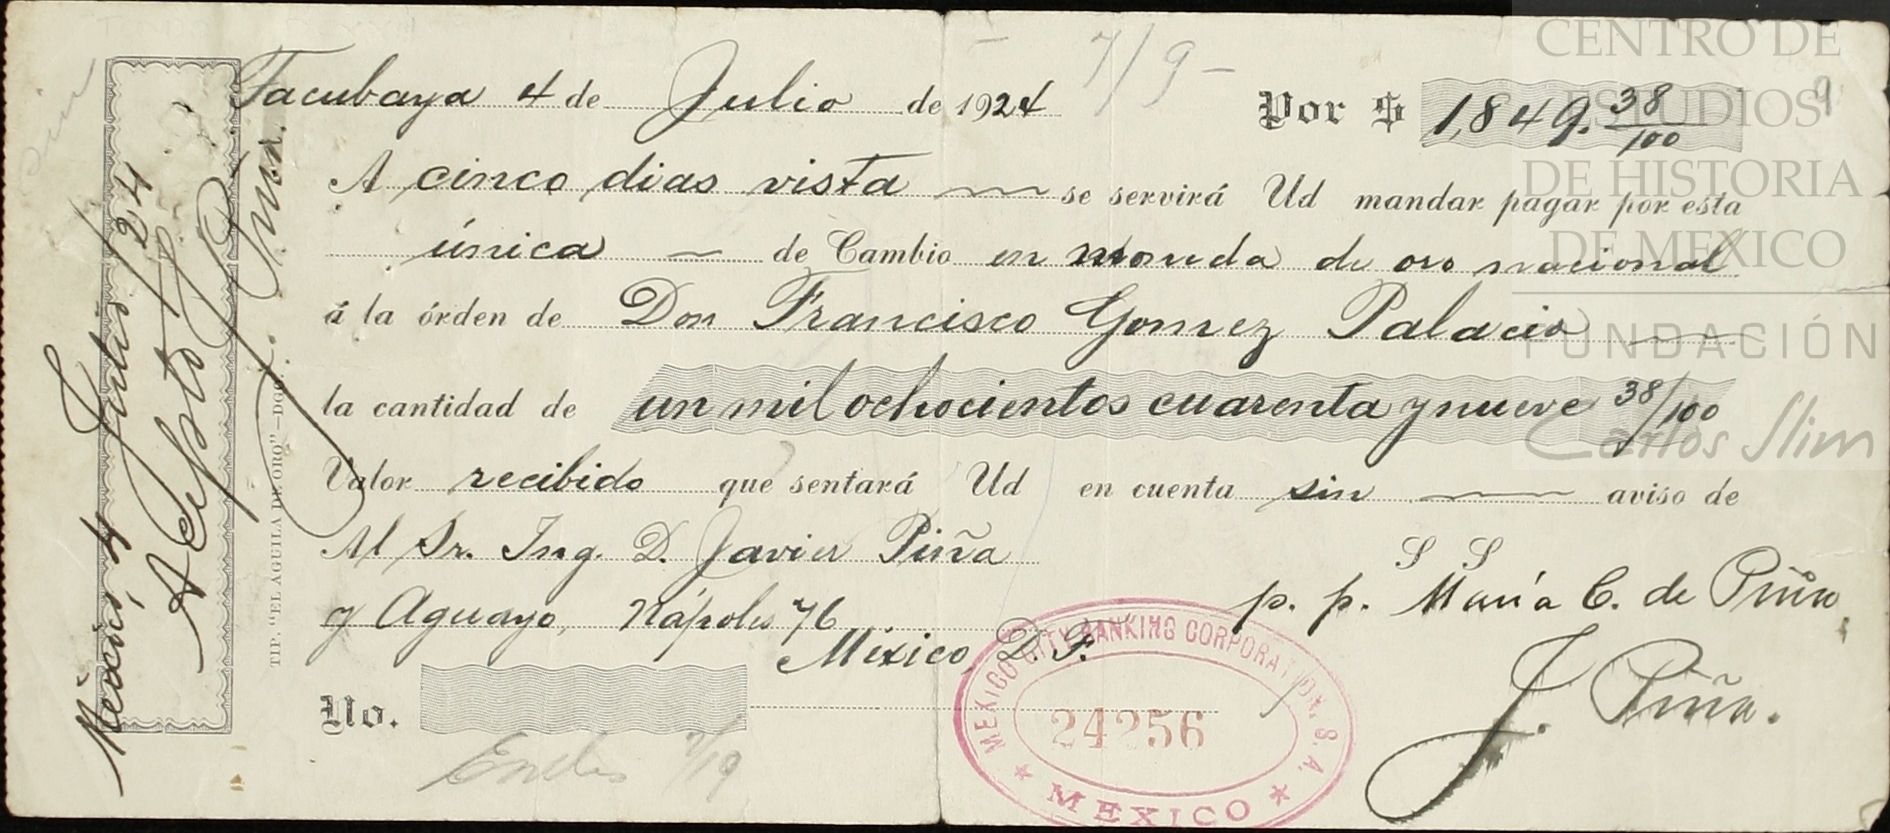 Tacubaya 4 de Julio de 1924
7/9-
Por $ 1,849. 38/100
9
A cinco dias vista se servirá Ud mandar pagar por esta
única de Cambio en moneda de oro nacional
á la órden de Don Francisco Gomez Palacio
la cantidad de un mil ochocientos cuarenta y nueve 38/100
Valor recibido que sentará Ud en cuenta sin aviso de
Al Sr. Ing. D. Javier Piña
S S
y Aguayo, Nápoles 76
p. p. María C. de Piña
México, D. F.
J. Piña.
No.
MEXICO CITY BANKING CORPORATION, S. A.
24256
* MEXICO *
7/19
México, 4 Julio/24
Acepto
J Piña.
TIP. "EL AGUILA DE ORO"-DGO.
CENTRO DE
ESTUDIOS
DE HISTORIA
DE MEXICO
FUNDACIÓN
Carlos Slim